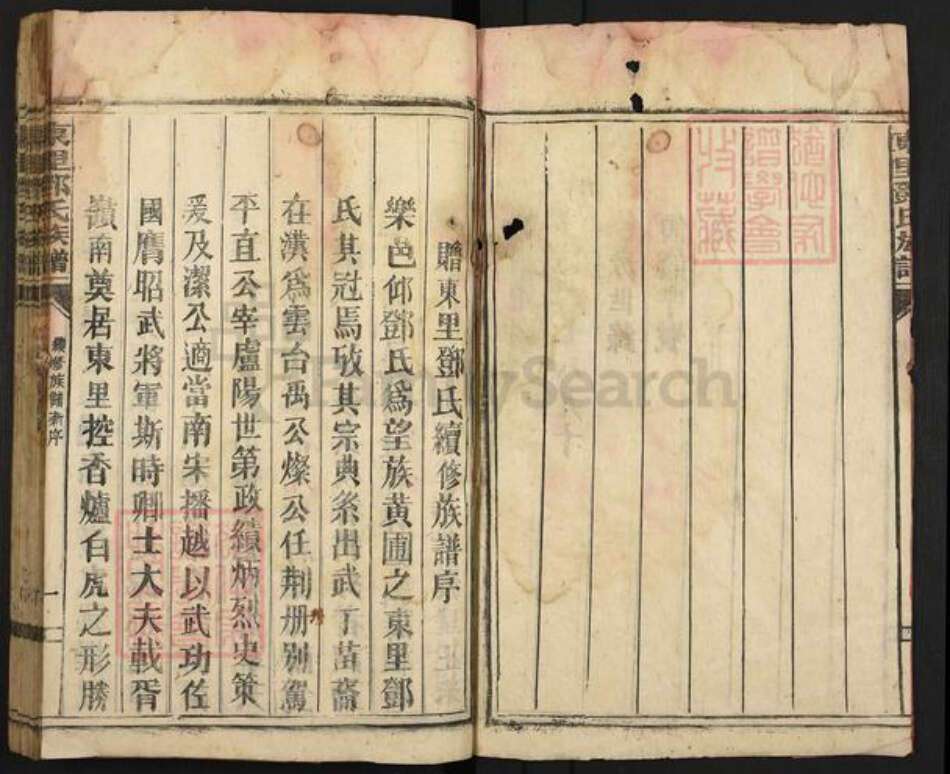 東里鄧氏族譜
道德家
譜學會
收藏
贈東里鄧氏續修族譜序
樂邑仰鄧氏爲望族黃圃之東里鄧
氏其冠焉攷其宗典系出武丁苗裔
在漢爲雲台禹公燦公任荆州別駕
平直公宰廬陽世第政績炳烈史策
爰及潔公適當南宋播越以武功佐
國膺昭武將軍斯時卿士大夫載胥
嶺南奠居東里控香爐白虎之形勝
東里鄧氏族譜
續修族譜新序
FamilySearch